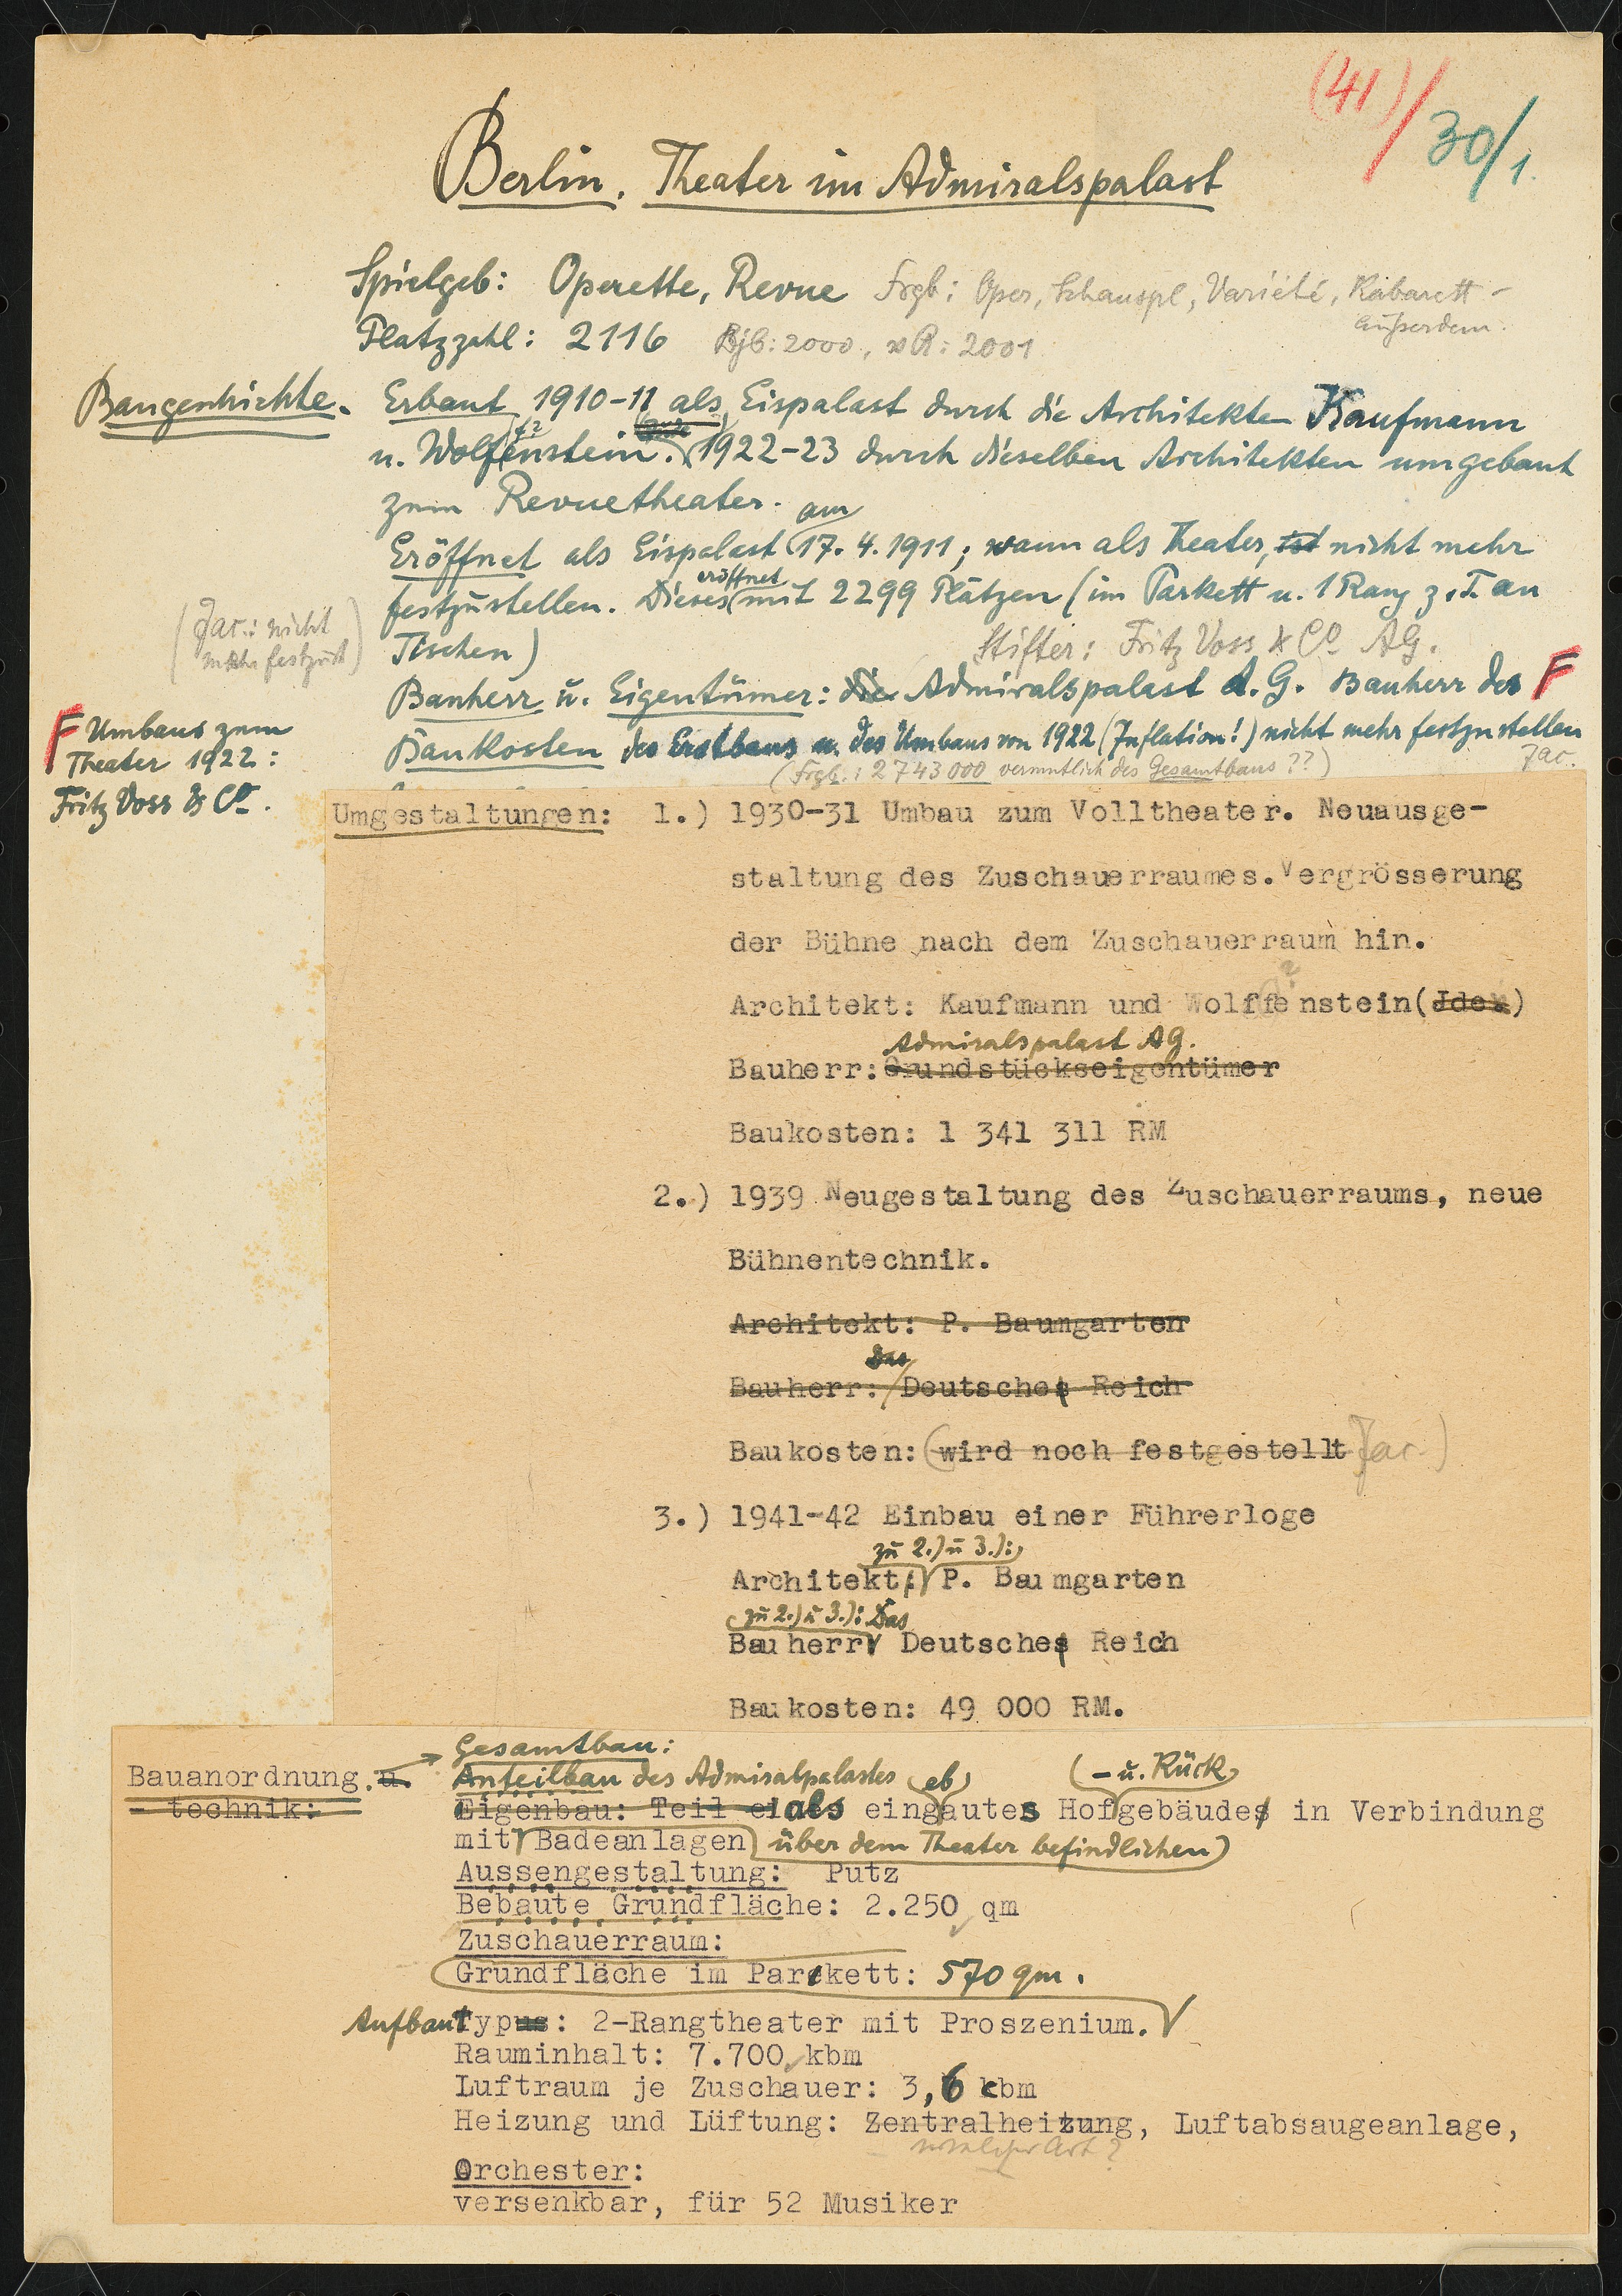 (41)/ 30/1.
Berlin. Theater im Admiralspalast
Spielgeb: Operette, Revue Frgb: Oper, Schauspl, Varieté, Kabarett –
außerdem.
Platzzahl: 2116 Bjb: 2000, R: 2001
Baugeschichte. Erbaut 1910-11 als Eispalast durch die Architekten Kaufmann
u. Wolffenstein. 1922-23 durch dieselben Architekten umgebaut
zum Revuetheater.
am
Eröffnet als Eispalast 17.4.1911; wann als Theater, ist nicht mehr
eröffnet
festzustellen. Dieses mit 2299 Plätzen (im Parkett u. 1 Rang z.T. an
(Jac.: nicht
mehr festzust)
Tischen)
Stifter: Fritz Voss & Co AG.
Bauherr u. Eigentümer: die Admiralspalast A.G. Bauherr des F
F Umbaus zum
Theater 1922:
Fritz Voss & Co.
Baukosten des Erstbaus u. des Umbaus von 1922 (Inflation!) nicht mehr festzustellen
(Frgb.: 2743000 vermutlich des Gesamtbaus ??) Jac.
Umgestaltungen: 1.) 1930-31 Umbau zum Volltheater. Neuausge-
staltung des Zuschauerraumes. Vergrösserung
der Bühne nach dem Zuschauerraum hin.
Architekt: Kaufmann und Wolffenstein (Jdem)
Admiralspalast AG.
Bauherr: Grundstückseigentümer
Baukosten: 1 341 311 RM
2.) 1939 Neugestaltung des Zuschauerraums, neue
Bühnentechnik.
Architekt: P. Baumgarten
Das
Bauherr: Deutsches Reich
Baukosten: (wird noch festgestellt Jac.)
3.) 1941-42 Einbau einer Führerloge
zu 2.) u 3.):
Architekt: P. Baumgarten
zu 2.) u 3.): Das
Bauherr Deutsches Reich
Baukosten: 49 000 RM.
Gesamtbau:
Bauanordnung. u. Anteilbau des Admiralpalastes eb – u. Rück
- technik: Eigenbau: Teil als eingautes Hofgebäudes in Verbindung
mit Badeanlagen über dem Theater befindlichen
Aussengestaltung: Putz
Bebaute Grundfläche: 2.250 qm
Zuschauerraum:
Grundfläche im Parkett: 570 qm.
Aufbau Typus: 2-Rangtheater mit Proszenium.
Rauminhalt: 7.700 kbm
Luftraum je Zuschauer: 3,6 cbm
Heizung und Lüftung: Zentralheizung, Luftabsaugeanlage,
welcher Art?
Orchester:
versenkbar, für 52 Musiker